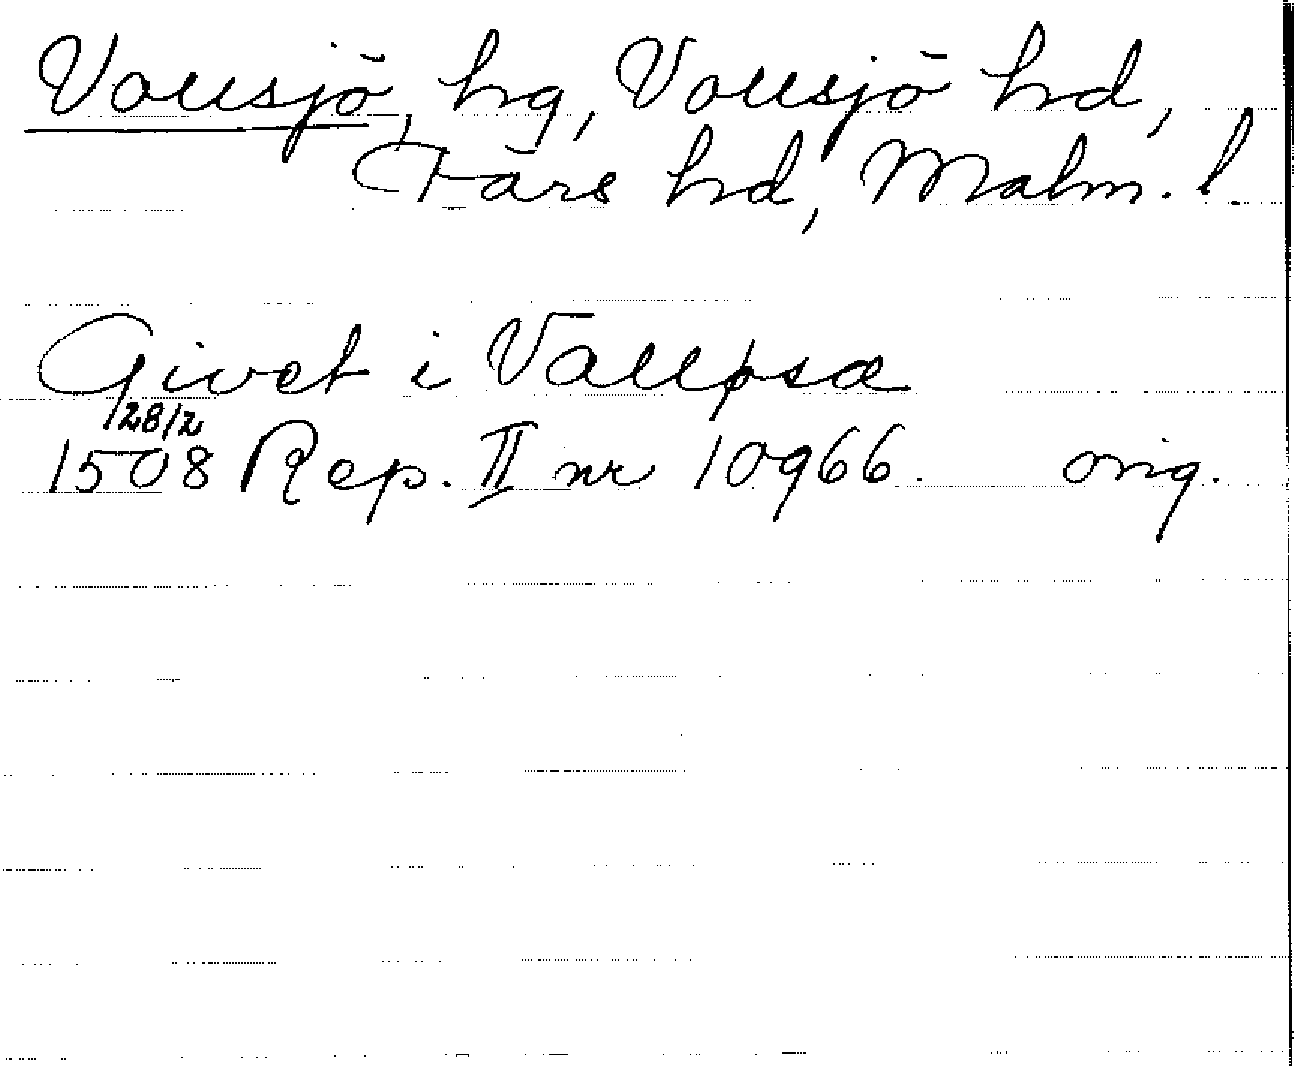 Vollsjö, hg, Vollsjö hd,
Färs hd, Malm. l.
Givet i Valløsæ
28/2
1508 Rep. II nr 10966. orig.